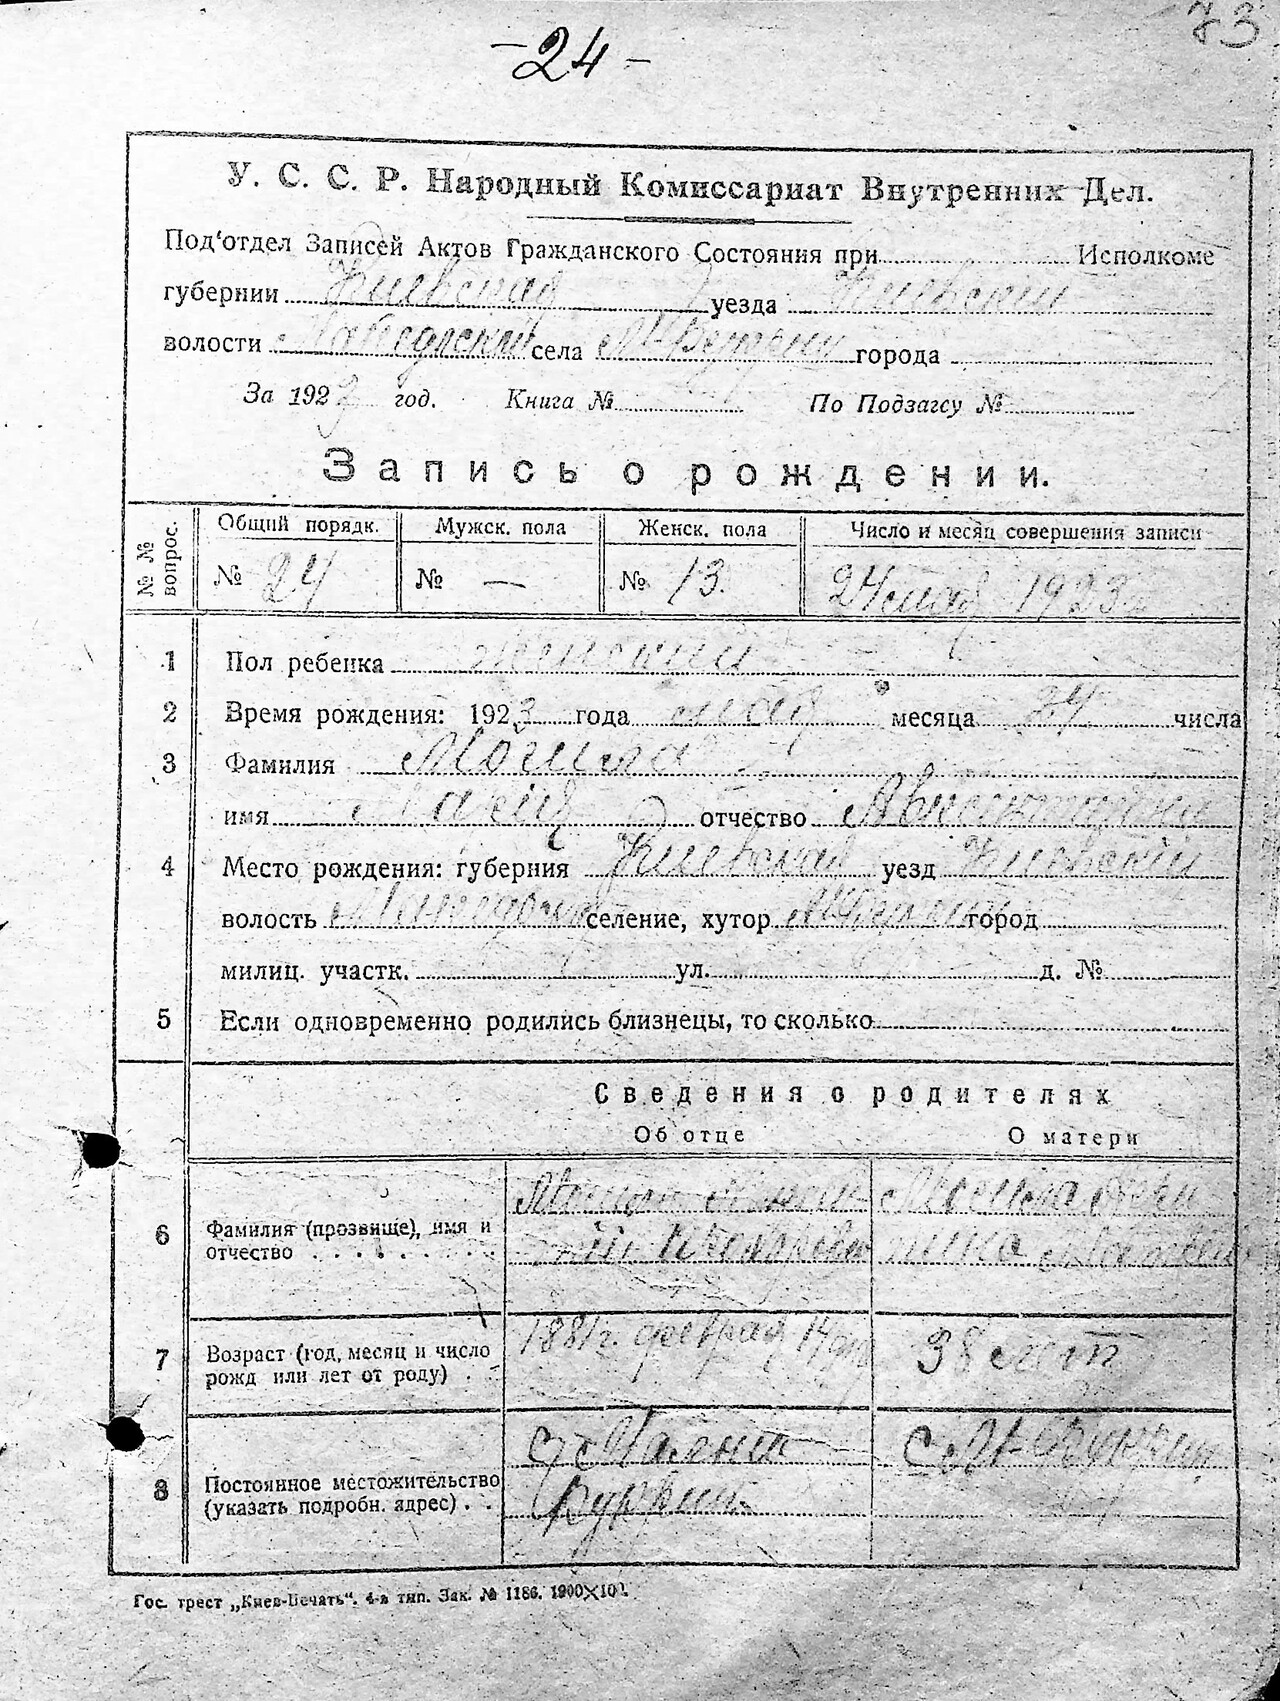 73
-24-
У. С. С. Р. Народный Комиссариат Внутренних Дел.
Под'отдел Записей Актов Гражданского Состояния при Исполкоме
губернии Киевская уезда Киевский
волости села города
За 1923 год. Книга № По Подзагсу №
Запись о рождении.
№ № вопрос. Общий порядк. Мужск. пола Женск. пола Число и месяц совершения записи
№ 24 № — № 13. 24 мая 1923
1 Пол ребенка женский
2 Время рождения: 1923 года мая месяца 24 числа
3 Фамилия Могила
имя Мария отчество
4 Место рождения: губерния Киевская уезд Киевский
волость селение, хутор город
милиц. участк. ул. д. №
5 Если одновременно родились близнецы, то сколько
Сведения о родителях
Об отце О матери
6 Фамилия (прозвище), имя и отчество Могила Могила
7 Возраст (год, месяц и число рожд или лет от роду) 1881 г. февраля 14 38 лет
8 Постоянное местожительство (указать подробн. адрес)
Гос. трест „Киев-Печать". 4-я тип. Зак. № 1186. 1900×10